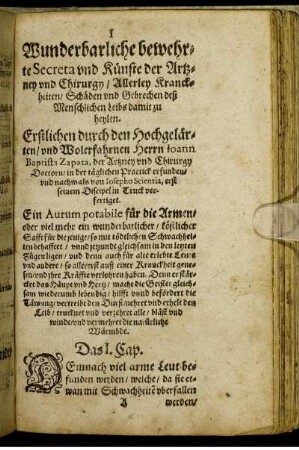 1
Wunderbarliche bewehr-
te Secreta vnd Künste der Artz-
ney vnd Chirurgy / Allerley Kranck-
heiten / Schäden vnd Gebrechen deß
Menschlichen Leibs damit zu
heylen.
Erstlichen durch den Hochgelär-
ten / vnd Wolerfahrnen Herrn Ioann
Baptista Zapata, der Artzney vnd Chirurgy
Doctorn / in der täglichen Practick erfunden /
vnd nachmals von Iosepho Scientia, erst
seinem Discipel in Truck ver-
fertiget.
Ein Aurum potabile für die Armen /
oder viel mehr ein wunderbarlicher / köstlicher
Safft für die jenige / so mit tödtlichen Schwachhei-
ten behafftet / vnnd jetzund gleichsam in den letzten
Zügen ligen / vnd denn auch für alte erlebte Leut /
vnd andere / so allererst auß einer Kranckheit gene-
sen / vnd jhre Kräffte verlohren haben. Denn er stär-
cket das Häupt vnd Hertz / macht die Geister gleich-
sam wiederumb lebendig / hilfft vnd befördert die
Däwung / vertreibt den Durst / nehret vnd erhelt den
Leib / trucknet vnd verzehret alle / bläst vnd
winde / vnd vermehret die natürliche
Wärmbde.
Das I. Cap.
DEmnach viel arme Leut be-
funden werden / welche / da sie et-
wan mit Schwachheitē vberfallen
A werden /